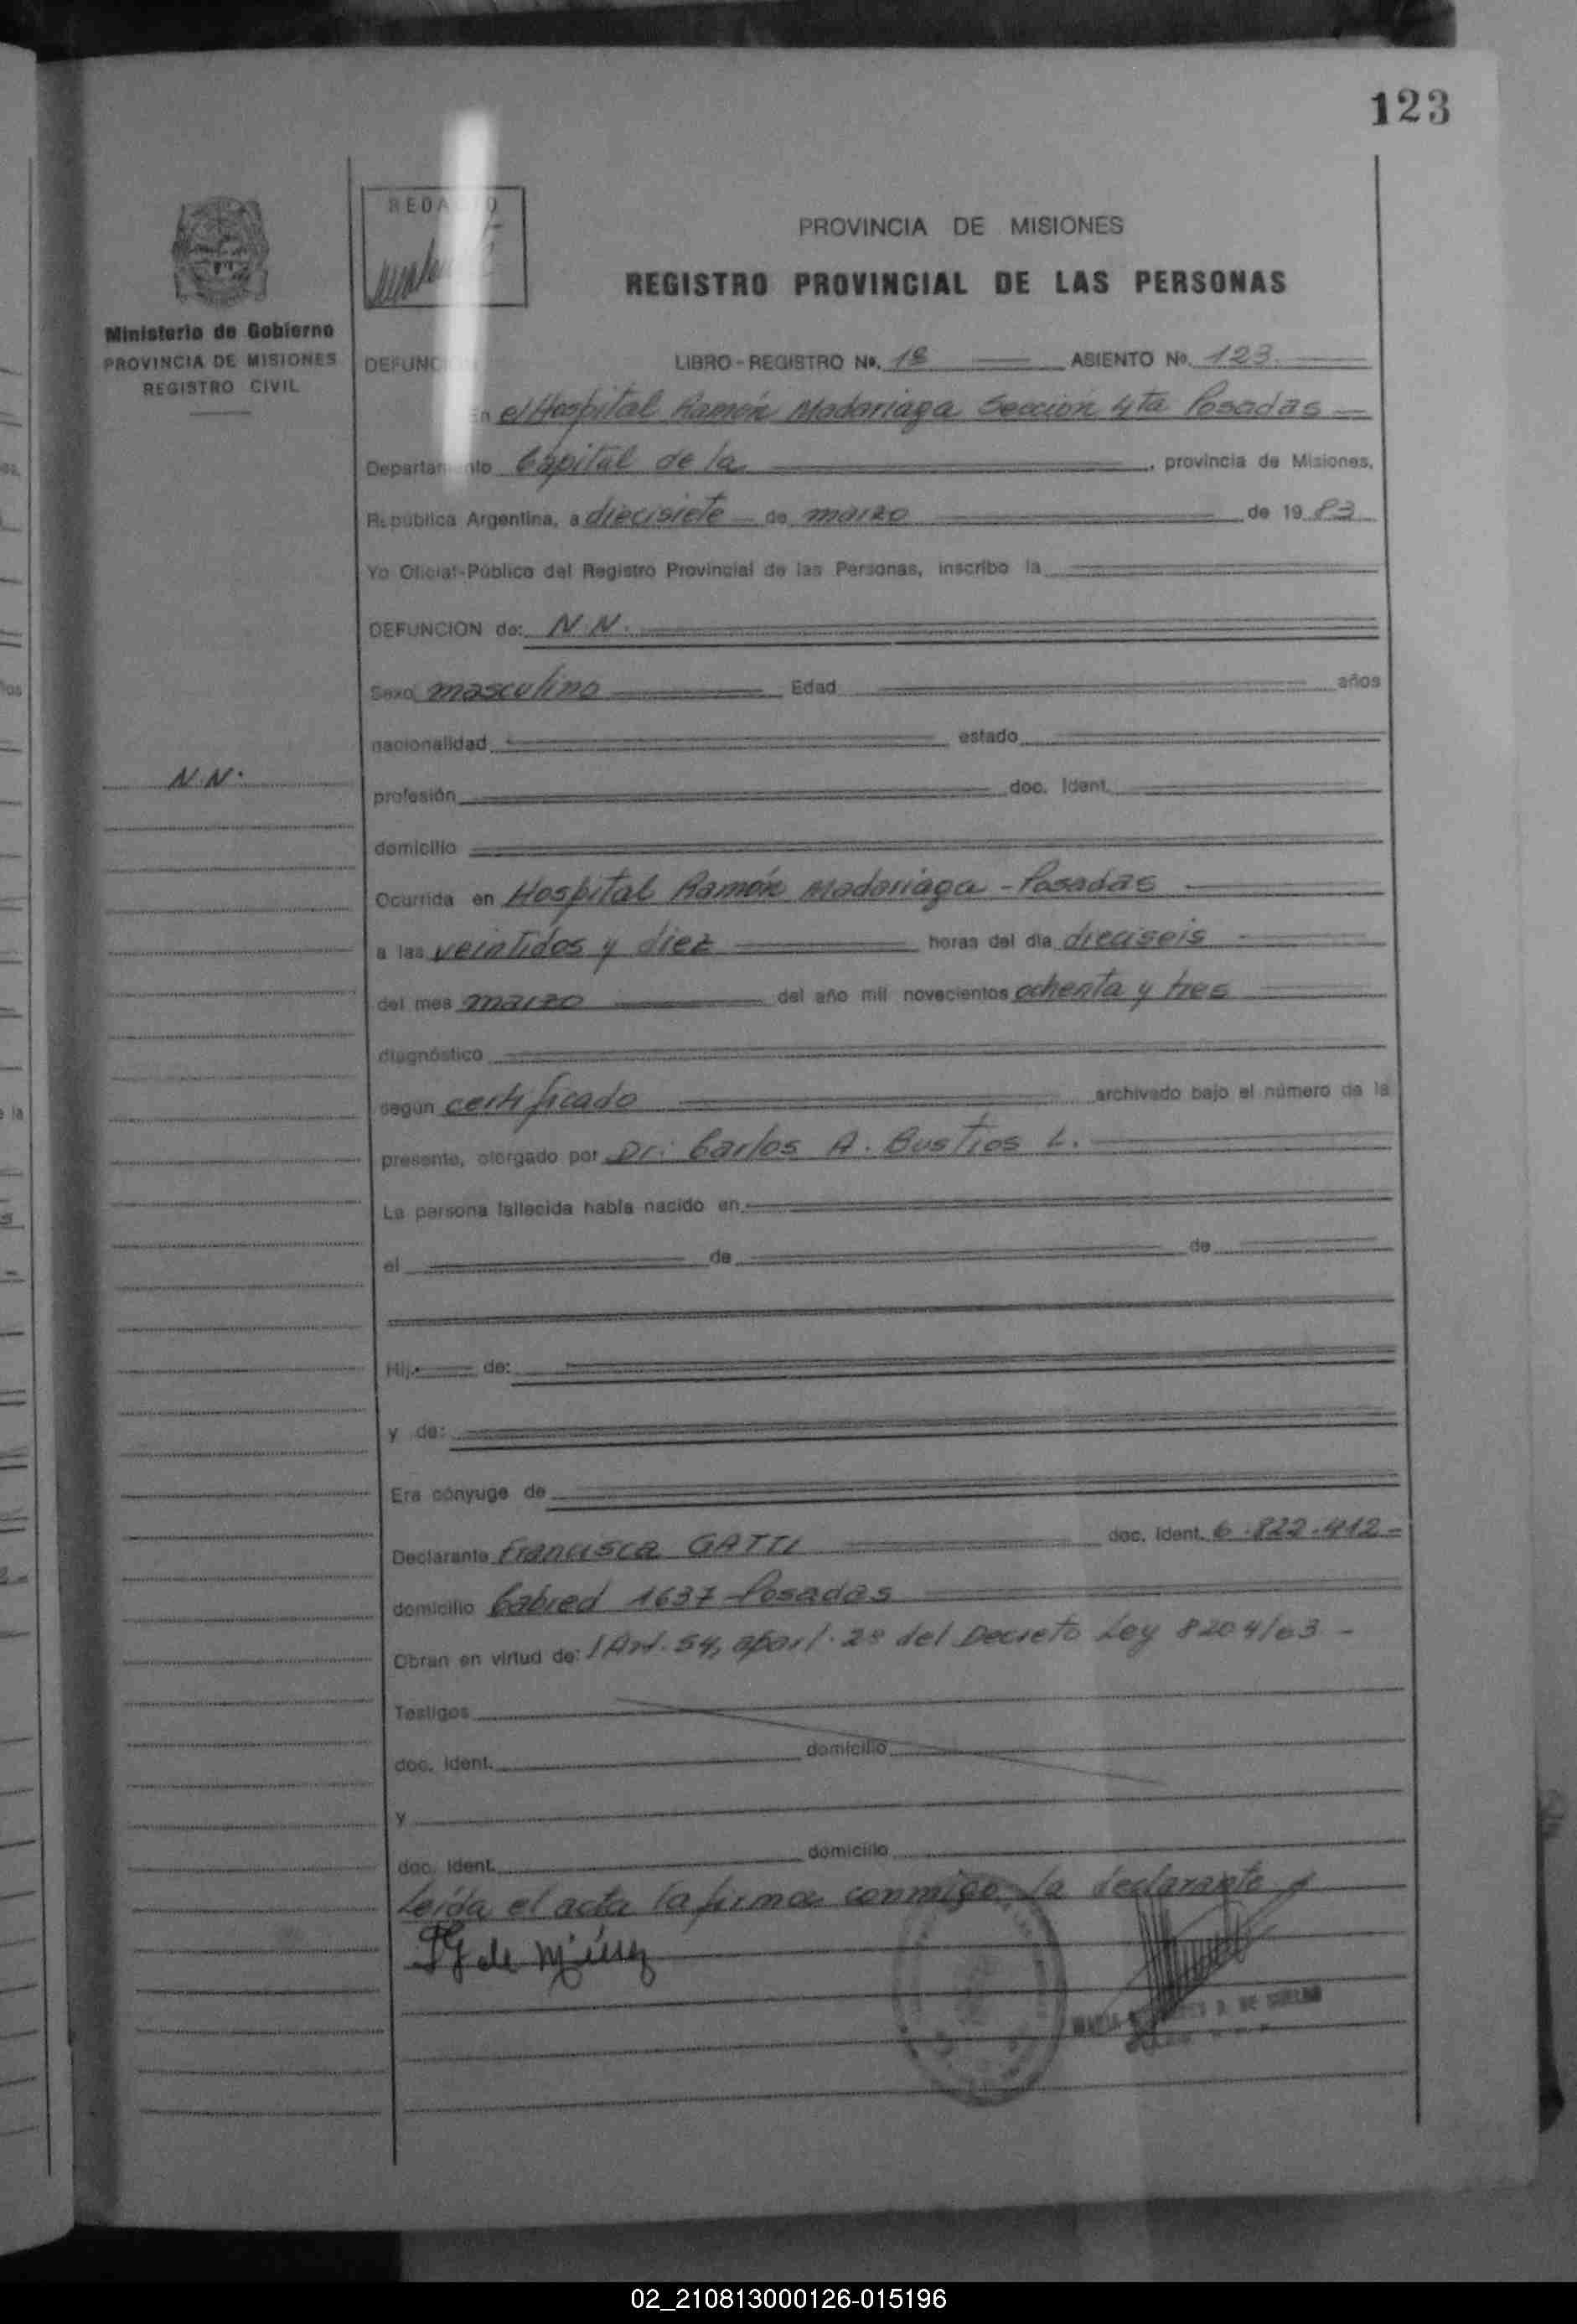 123
REDA
PROVINCIA DE MISIONES
REGISTRO PROVINCIAL DE LAS PERSONAS
Ministerio de Gobierno
PROVINCIA DE MISIONES
REGISTRO CIVIL
DEFUNC LIBRO - REGISTRO No. 18 ASIENTO No. 123
el Hospital Ramón Madariaga Sección 4ta Posadas
Departamento Capital de la , provincia de Misiones,
República Argentina, a diecisiete de marzo de 1983
Yo Oficial-Público del Registro Provincial de las Personas, inscribo la
DEFUNCION de: N.N.
Sexo masculino Edad años
nacionalidad estado
N.N.
profesión doc. Ident.
domicilio
Ocurrida en Hospital Ramón Madariaga - Posadas
a las veintidos y diez horas del día dieciseis
del mes marzo del año mil novecientos ochenta y tres
diagnóstico
según certificado archivado bajo el número de la
presente, otorgado por Dr. Carlos A. Bustios L.
La persona fallecida había nacido en
el de de
Hij de:
y de:
Era cónyuge de
Declarante Francisca GATTI doc. Ident. 6.822.412
domicilio Cabred 1637 - Posadas
Obran en virtud de: Art. 54, apart. 2º del Decreto Ley 8204/63 -
Testigos
doc. Ident. domicilio
y
doc. Ident. domicilio
Leída el acta la firma conmigo la declarante
02_210813000126-015196